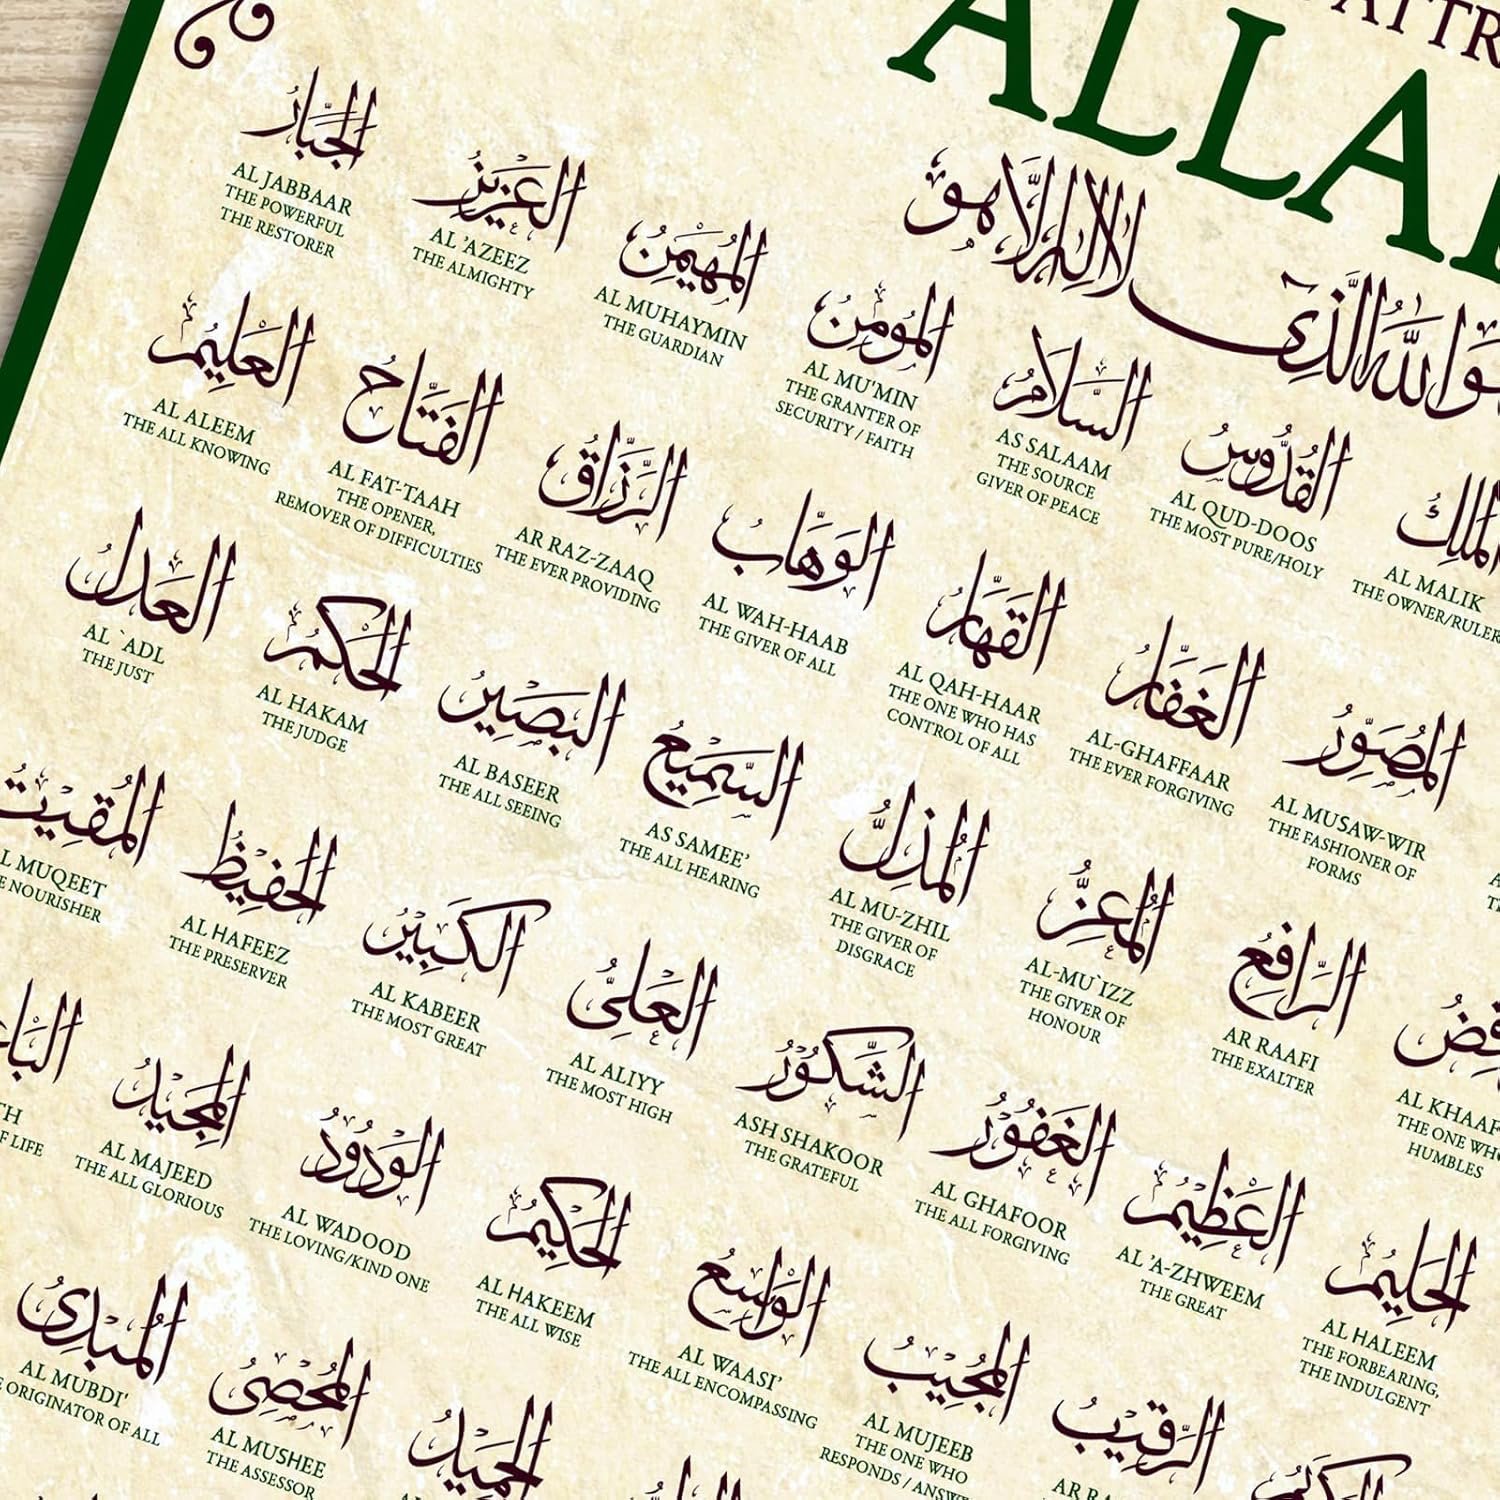 ALLA
هُوَ اللهُ الَّذِي
لَا إِلٰهَ إِلَّا هُوَ
الملك
AL MALIK
THE OWNER/RULER
القدوس
AL QUD-DOOS
THE MOST PURE/HOLY
السلام
AS SALAAM
THE SOURCE
GIVER OF PEACE
المؤمن
AL MU'MIN
THE GRANTER OF
SECURITY / FAITH
المهيمن
AL MUHAYMIN
THE GUARDIAN
العزيز
AL 'AZEEZ
THE ALMIGHTY
الجبار
AL JABBAAR
THE POWERFUL
THE RESTORER
المصور
AL MUSAW-WIR
THE FASHIONER OF
FORMS
الغفار
AL-GHAFFAAR
THE EVER FORGIVING
القهار
AL QAH-HAAR
THE ONE WHO HAS
CONTROL OF ALL
الوهاب
AL WAH-HAAB
THE GIVER OF ALL
الرزاق
AR RAZ-ZAAQ
THE EVER PROVIDING
الفتاح
AL FAT-TAAH
THE OPENER,
REMOVER OF DIFFICULTIES
العليم
AL ALEEM
THE ALL KNOWING
AL KHAAF
THE ONE WH
HUMBLES
الرافع
AR RAAFI
THE EXALTER
المعز
AL-MU`IZZ
THE GIVER OF
HONOUR
المذل
AL MU-ZHIL
THE GIVER OF
DISGRACE
السميع
AS SAMEE'
THE ALL HEARING
البصير
AL BASEER
THE ALL SEEING
الحكم
AL HAKAM
THE JUDGE
العدل
AL `ADL
THE JUST
الحليم
AL HALEEM
THE FORBEARING,
THE INDULGENT
العظيم
AL 'A-ZHWEEM
THE GREAT
الغفور
AL GHAFOOR
THE ALL FORGIVING
الشكور
ASH SHAKOOR
THE GRATEFUL
العلي
AL ALIYY
THE MOST HIGH
الكبير
AL KABEER
THE MOST GREAT
الحفيظ
AL HAFEEZ
THE PRESERVER
المقيت
L MUQEET
E NOURISHER
الرقيب
AR RA
المجيب
AL MUJEEB
THE ONE WHO
RESPONDS / ANSW
الواسع
AL WAASI'
THE ALL ENCOMPASSING
الحكيم
AL HAKEEM
THE ALL WISE
الودود
AL WADOOD
THE LOVING/KIND ONE
المجيد
AL MAJEED
THE ALL GLORIOUS
TH
F LIFE
الحميد
المحصي
AL MUSHEE
THE ASSESSOR
المبدئ
AL MUBDI'
E ORIGINATOR OF ALL